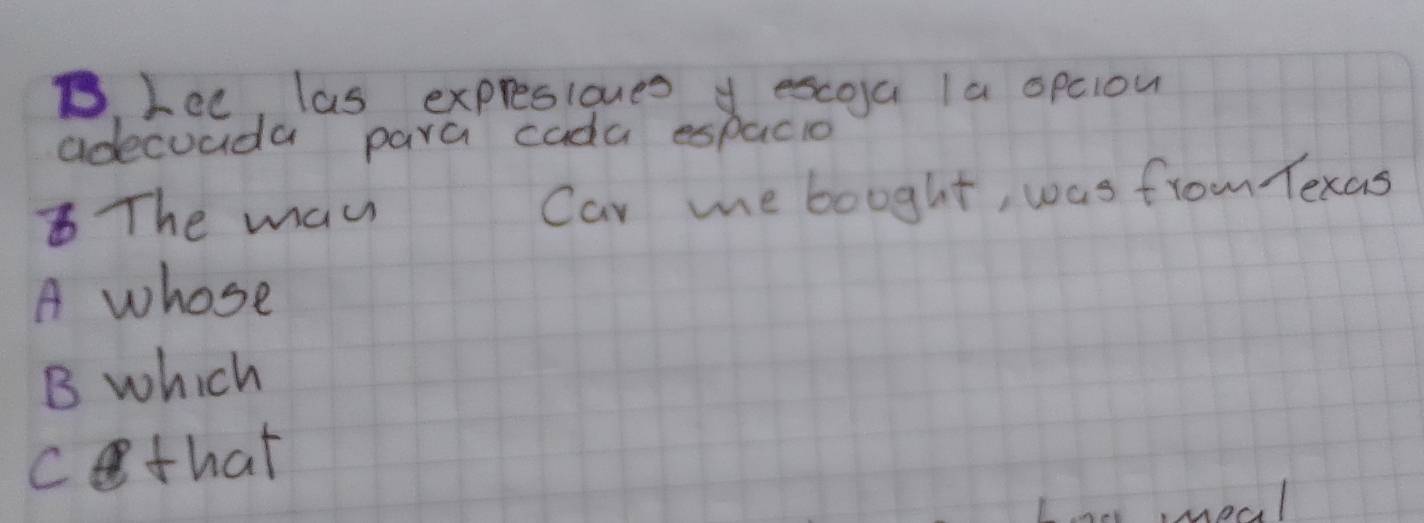 B, Lee, las expresiones y escoja la opcion
adecuada para cada espacio
8 The man Car me bought, was from Texas
A whose
B which
C that
meal